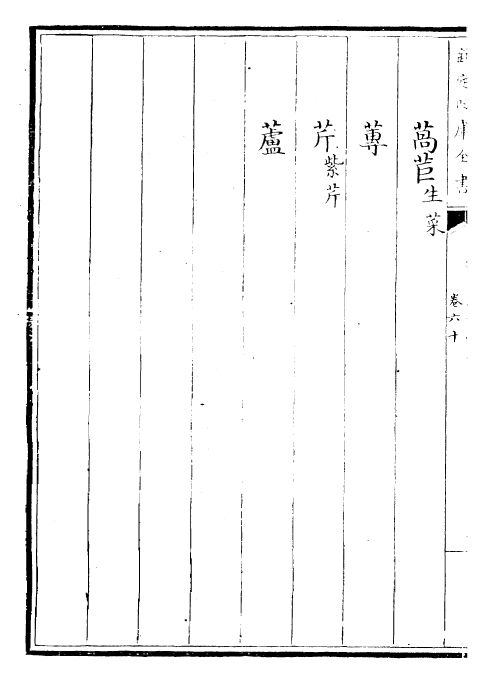 欽定四庫全書
卷六十
萵苣生菜
蓴
芹紫芹
蘆